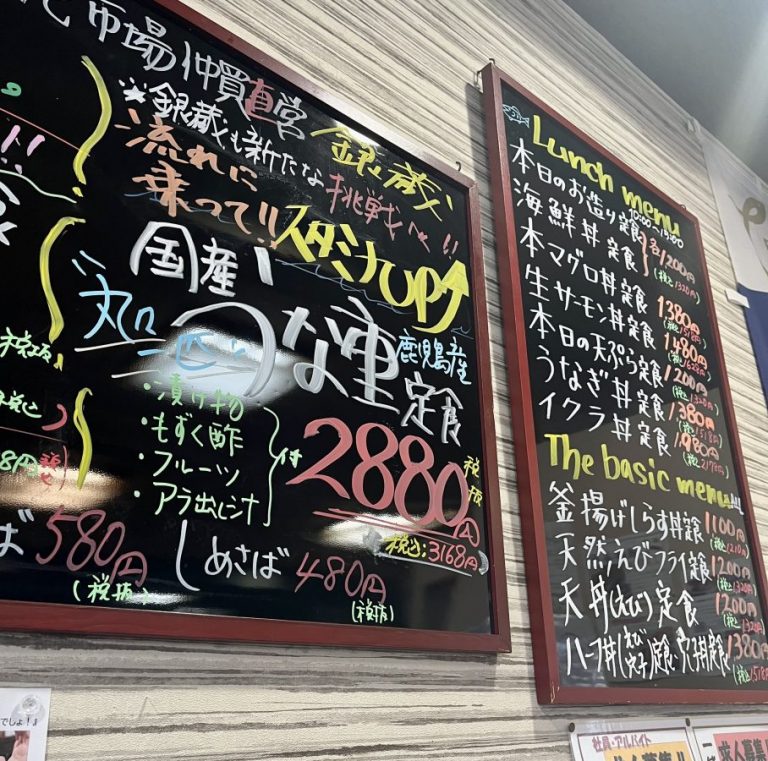 市場仲買直営
☆銀蔵も新たな挑戦へ!!
銀蔵
流れに
乗って!!
スタミナUP
国産
うな重定食
丸々
一匹
鹿児島産
・漬け物
・もずく酢
・フルーツ
・アラ出し汁
付
2880円
税抜
税込:3168円
580円
(税抜)
しめさば 480円
(税抜)
Lunch menu
10:00~15:00
本日のお造り定食
海鮮丼定食
各1200円
(税込1320円)
本マグロ丼定食 1380円
(税込1518円)
生サーモン丼定食 1480円
(税込1628円)
本日の天ぷら定食 1200円
(税込1320円)
うなぎ丼定食 1380円
(税込1518円)
イクラ丼定食 1980円
(税込2178円)
The basic menu
釜揚げしらす丼定食 1100円
(税込1210円)
天然えびフライ定食 1200円
(税込1320円)
天丼(えび)定食 1200円
(税込1320円)
ハーフ丼(えび穴子)定食・穴子丼定食 1380円
(税込1518円)
でしょ!』
社員・アルバイト
求人募集!!